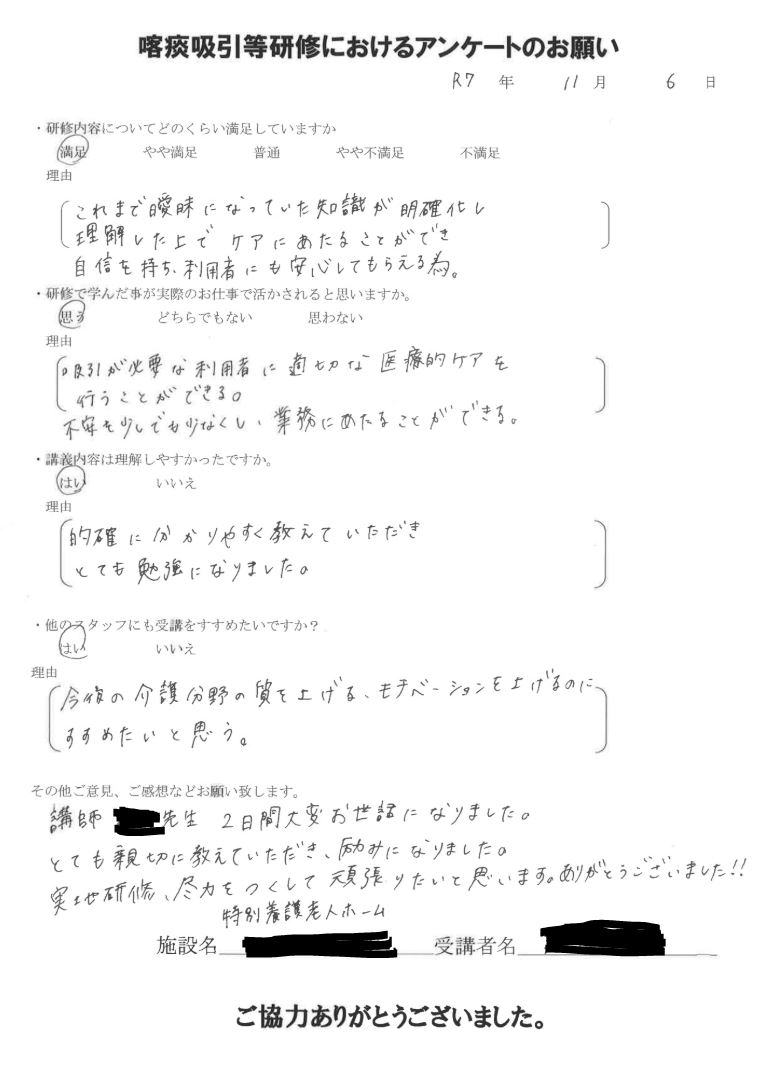 喀痰吸引等研修におけるアンケートのお願い
R7 年 11 月 6 日
・研修内容についてどのくらい満足していますか
満足 やや満足 普通 やや不満足 不満足
理由
これまで曖昧になっていた知識が明確化し
理解した上でケアにあたることができ
自信を持ち、利用者にも安心してもらえる為。
・研修で学んだ事が実際のお仕事で活かされると思いますか。
思う どちらでもない 思わない
理由
吸引が必要な利用者に適切な医療的ケアを
行うことができる。
不安を少しでも少なくし、業務にあたることができる。
・講義内容は理解しやすかったですか。
はい いいえ
理由
的確に分かりやすく教えていただき
とても勉強になりました。
・他のスタッフにも受講をすすめたいですか？
はい いいえ
理由
今後の介護分野の質を上げる、モチベーションを上げるのに
すすめたいと思う。
その他ご意見、ご感想などお願い致します。
講師 先生 2日間大変お世話になりました。
とても親切に教えていただき、励みになりました。
実地研修、尽力をつくして頑張りたいと思います。ありがとうございました!!
特別養護老人ホーム
施設名 受講者名
ご協力ありがとうございました。